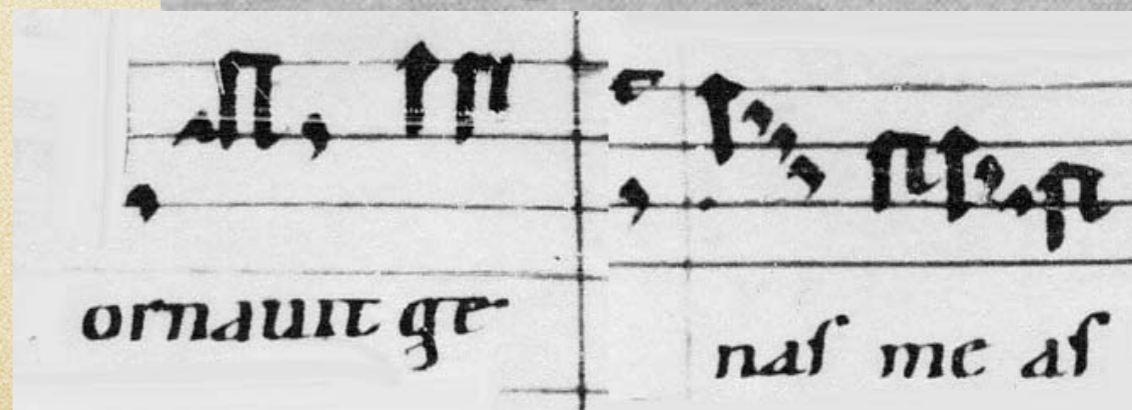 ornauit ge
nas me as